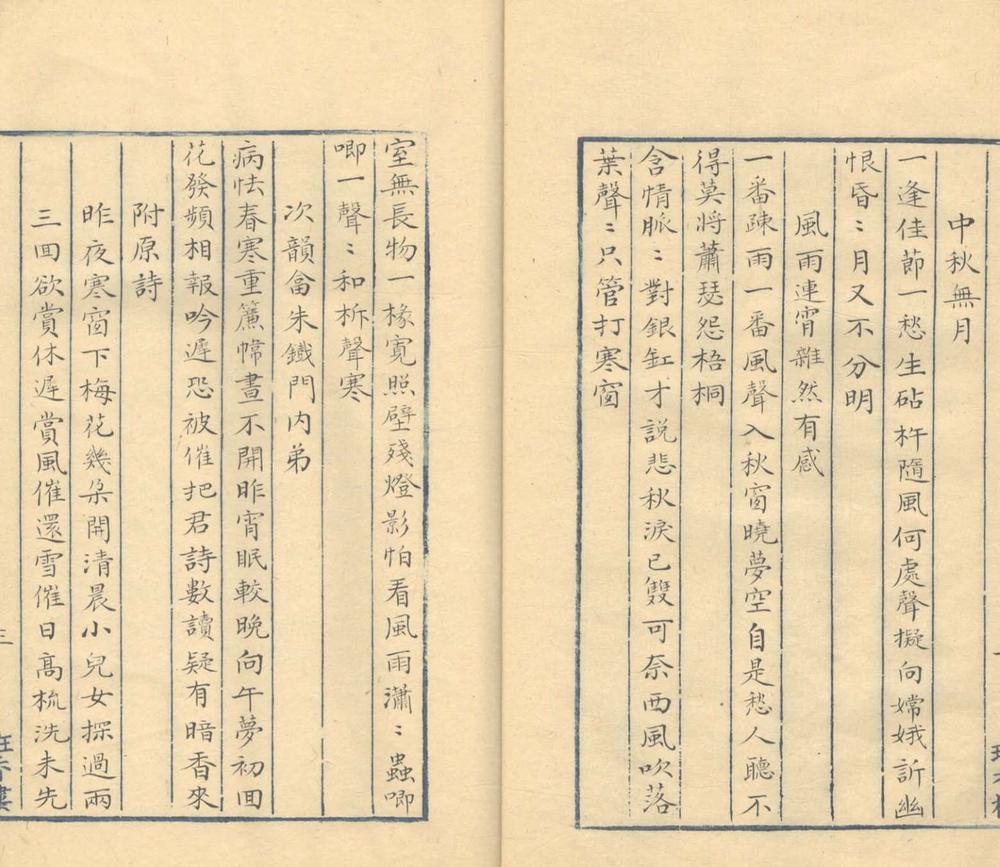 中秋無月
一逢佳節一愁生砧杵隨風何處聲擬向嫦娥訴幽
恨昏〻月又不分明
風雨連宵雜然有感
一番疎雨一番風聲入秋窗曉夢空自是愁人聽不
得莫將蕭瑟怨梧桐
含情脈〻對銀缸才說悲秋淚已雙可奈西風吹落
葉聲〻只管打寒窗
室無長物一椽寬照壁殘燈影怕看風雨瀟〻蟲唧
唧一聲〻和柝聲寒
次韻畣朱鐵門內弟
病怯春寒重簾幃晝不開昨宵眠較晚向午夢初回
花發頻相報吟遲恐被催把君詩數讀疑有暗香來
附原詩
昨夜寒窗下梅花幾朵開清晨小兒女探過兩
三回欲賞休遲賞風催還雪催日高梳洗未先
三